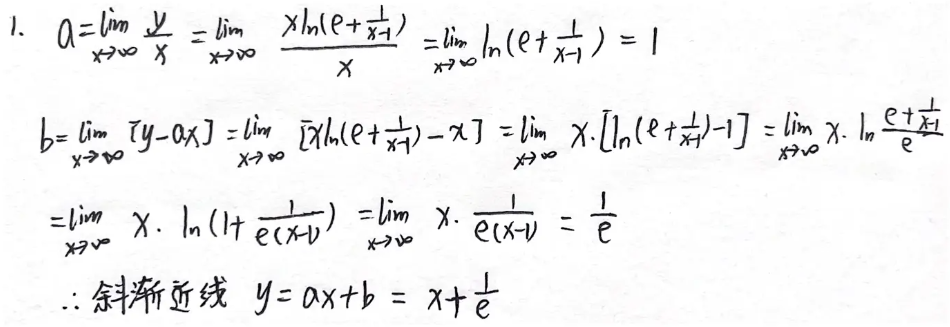 1. a = lim_{x→∞} y/x = lim_{x→∞} xln(e+1/(x-1))/x = lim_{x→∞} ln(e+1/(x-1)) = 1
b = lim_{x→∞} [y-ax] = lim_{x→∞} [xln(e+1/(x-1))-x] = lim_{x→∞} x·[ln(e+1/(x-1))-1] = lim_{x→∞} x·ln (e+1/(x-1))/e
= lim_{x→∞} x·ln(1+1/(e(x-1))) = lim_{x→∞} x·1/(e(x-1)) = 1/e
∴ 斜渐近线 y = ax+b = x+1/e